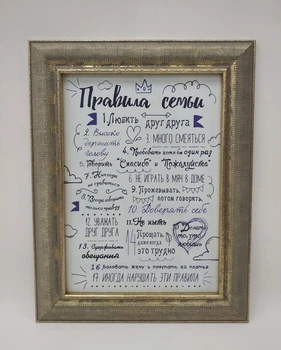 Правила семьи
1. Любить
друг друга
2. Высоко
держать
голову
3. много смеяться
4. Пробовать хотя бы один раз
5. Говорить "Спасибо" и "Пожалуйста"
6. НЕ ИГРАТЬ В МЯЧ В ДОМЕ
7. Никогда
не сдаваться
8. Всегда говорить
только правду
9. Прожевывать,
потом говорить,
10. Доверять себе
11. Не ныть
12. УВАЖАТЬ
ДРУГ ДРУГА
13. Сдерживать
обещания
14 Прощать,
даже когда
это трудно
15 Делать
то, что
любишь
16 Баловать жену и покупать ей платья
17. ИНОГДА НАРУШАТЬ ЭТИ ПРАВИЛА